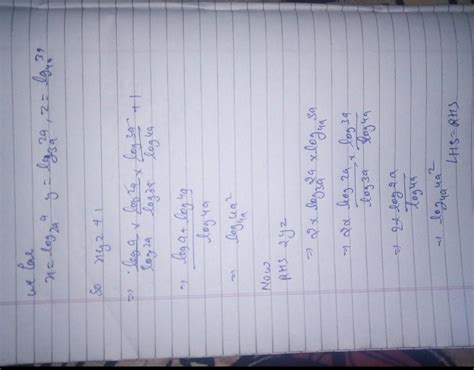 we have
x = log_{2a} a  y = log_{3a} 2a, z = log_{4a} 3a
So xyz + 1
⇒ log a / log 2a × log 2a / log 3a × log 3a / log 4a + 1
⇒ log a + log 4a / log 4a
⇒ log_{4a} 4a²
Now
RHS 2yz
⇒ 2 × log_{3a} 2a × log_{4a} 3a
⇒ 2 × log 2a / log 3a × log 3a / log 4a
⇒ 2 × log 2a / log 4a
⇒ log_{4a} 4a²
LHS = RHS